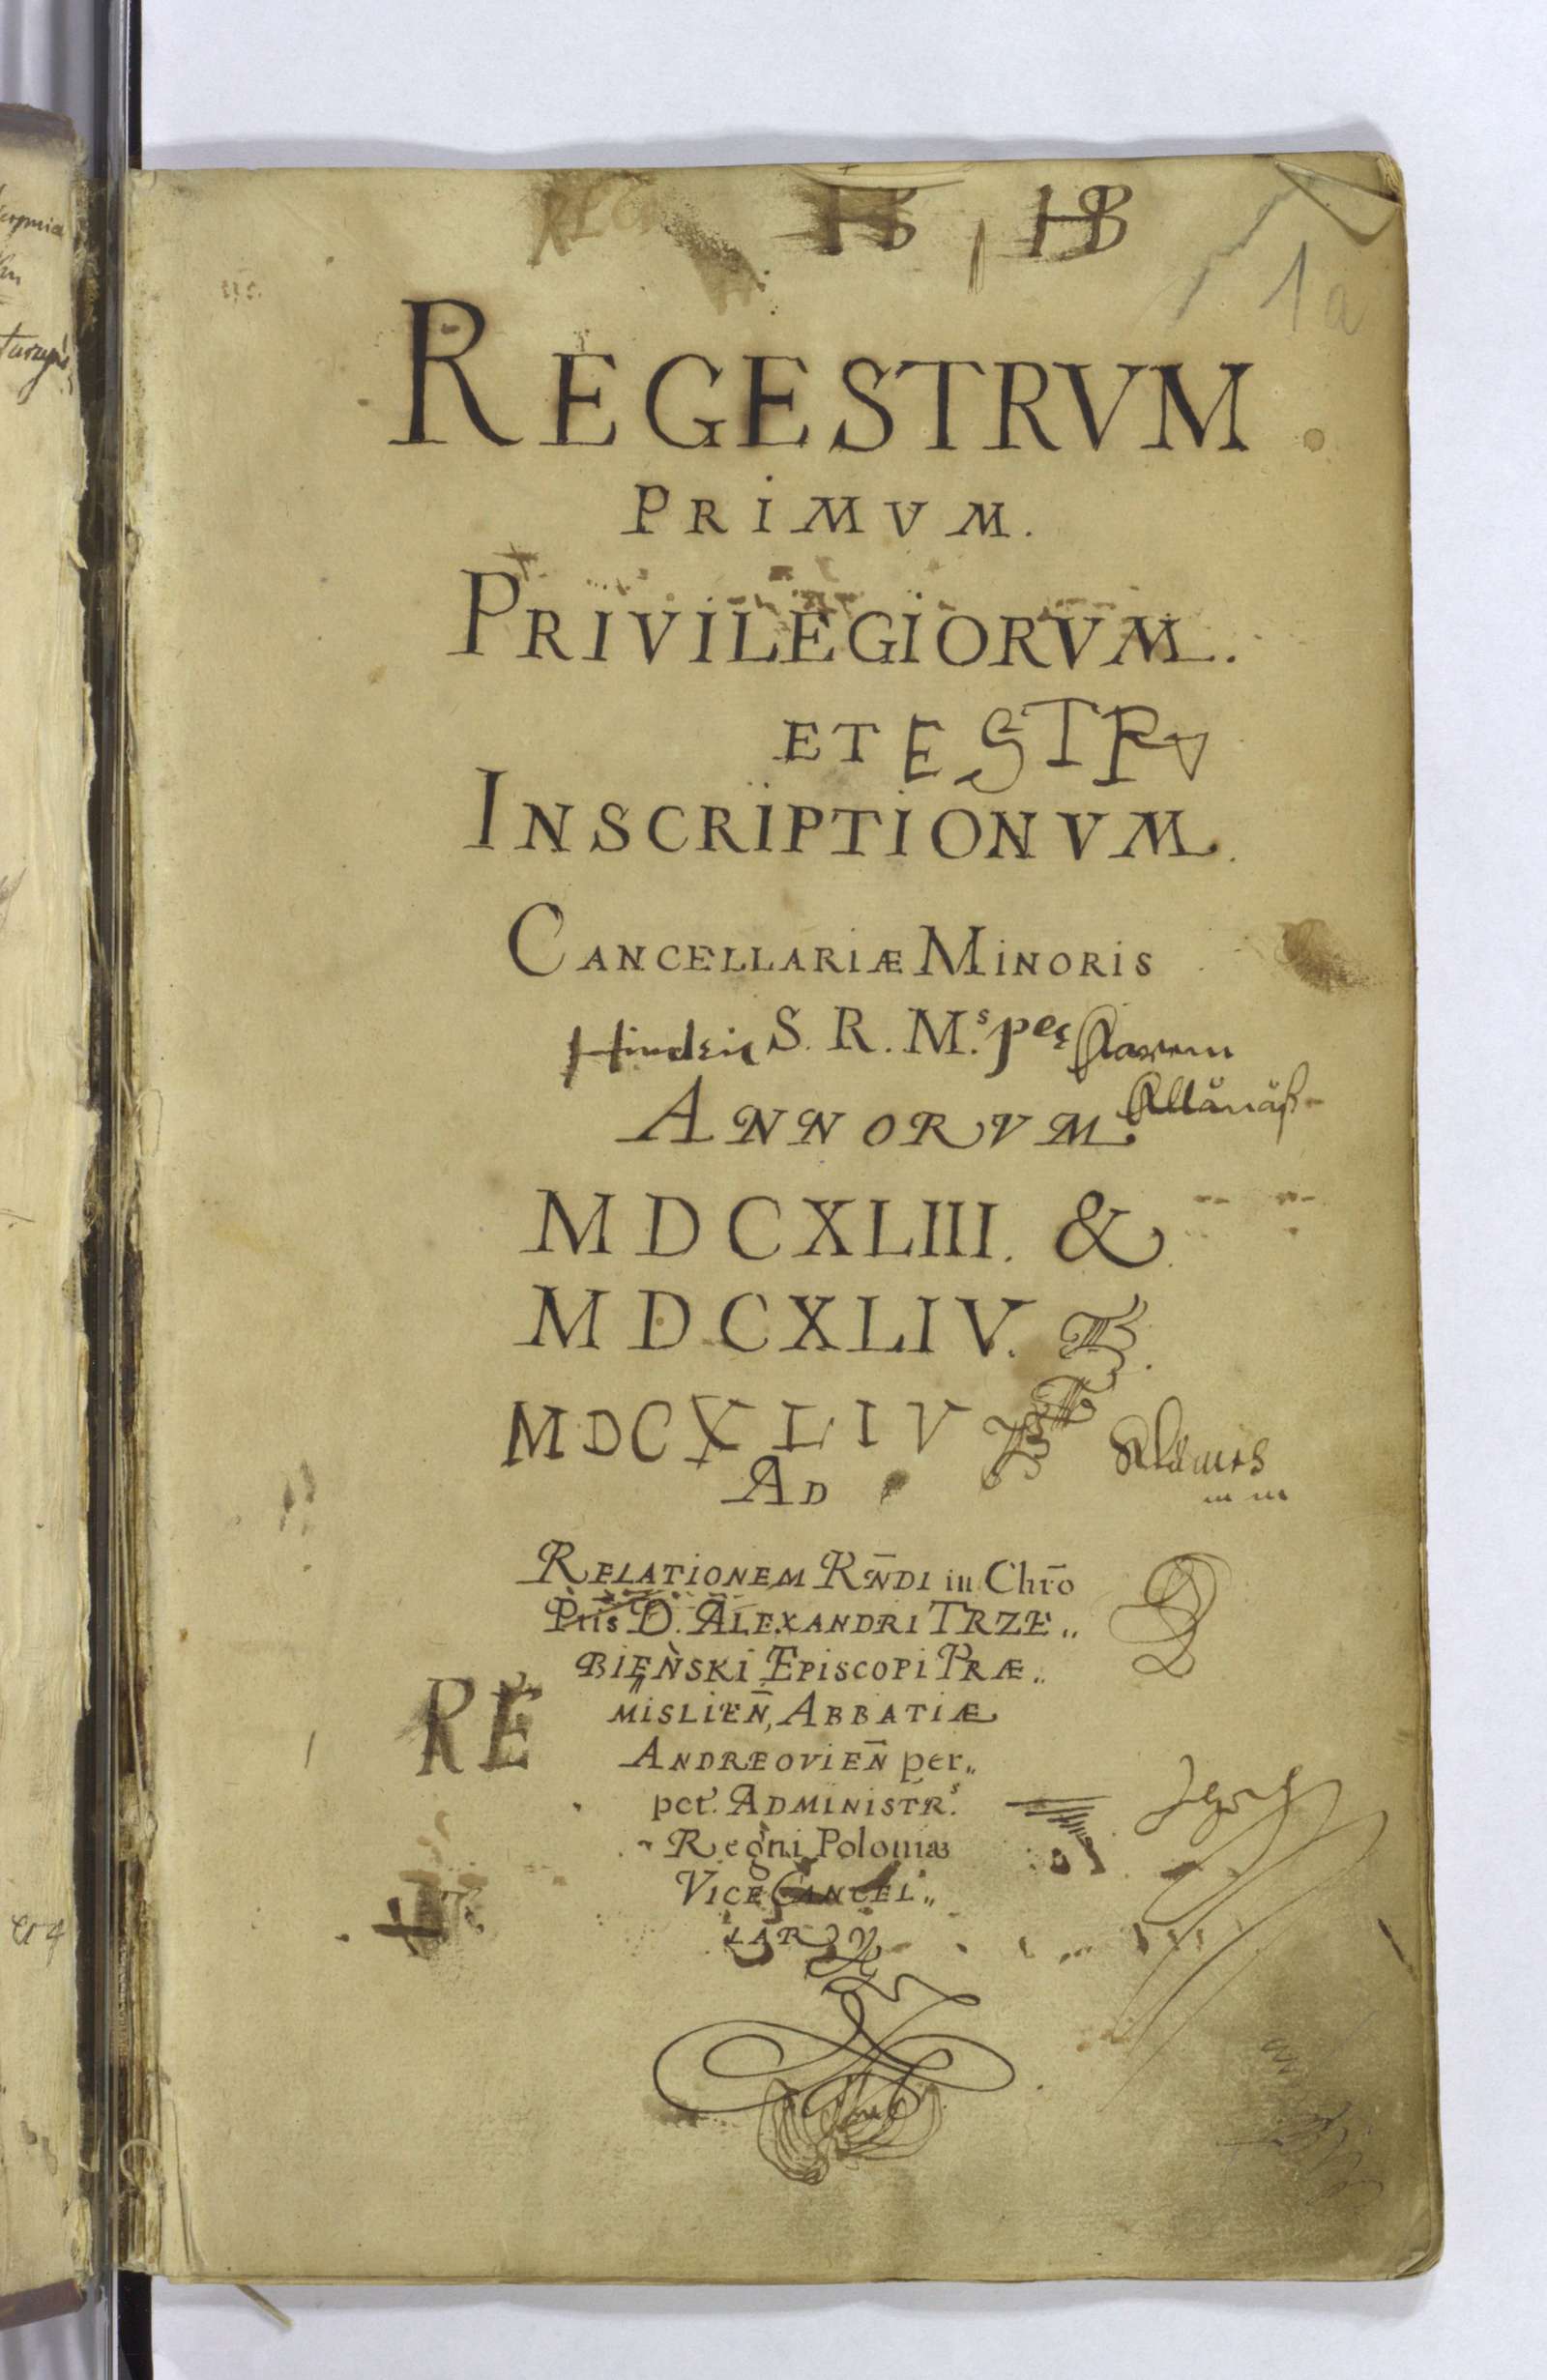 HB HB
1a
REGESTRVM
PRIMVM.
PRIVILEGIORVM.
ET ESTR
INSCRIPTIONVM.
CANCELLARIÆ MINORIS
S. R. M.s
ANNORVM.
MDCXLIII. &
MDCXLIV.
MDCXLIV
AD
RELATIONEM RN̄DI in Chrō
Ptis D. ALEXANDRI TRZE„
BIEŃSKI EPISCOPI PRÆ„
RE
MISLIEN̄, ABBATIÆ
ANDREOVIEN̄ per„
pet. ADMINISTR.s
Regni Poloniæ
VICECANCEL„
LARY